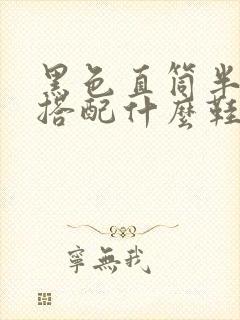 黑色直筒半
搭配什麼鞋
寧無我